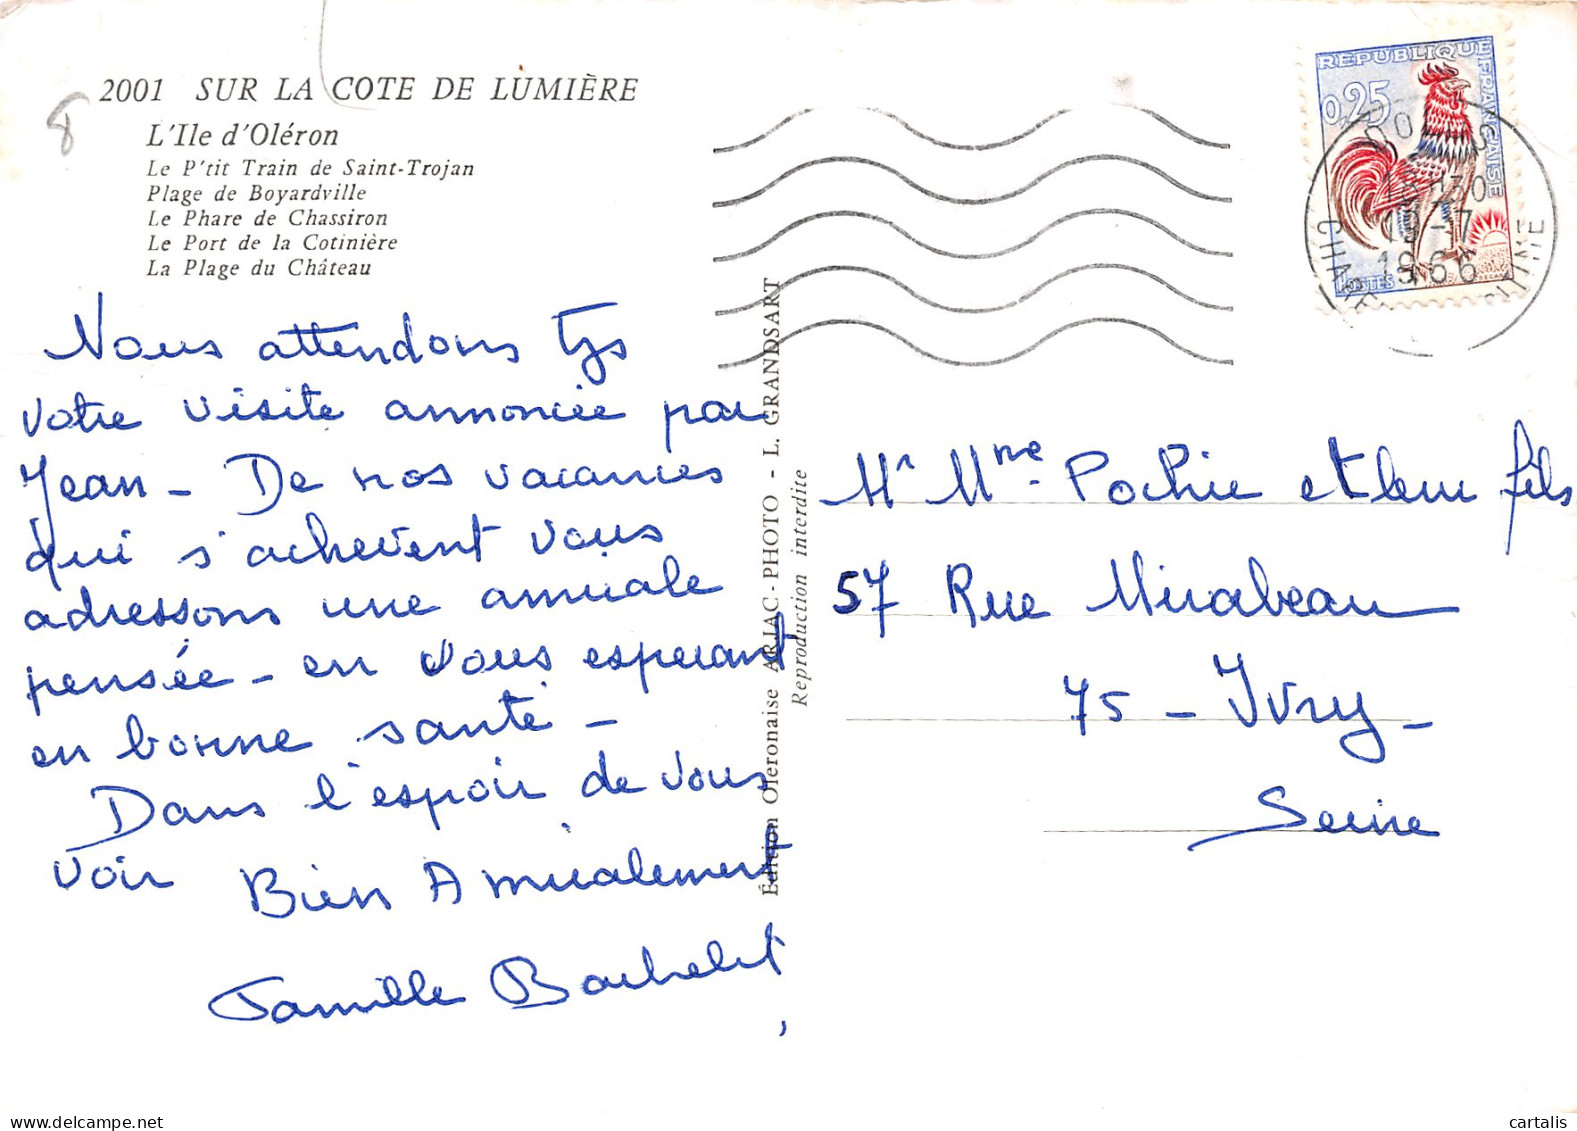 2001 SUR LA COTE DE LUMIÈRE
8
L'Ile d'Oléron
Le P'tit Train de Saint-Trojan
Plage de Boyardville
Le Phare de Chassiron
Le Port de la Cotinière
La Plage du Château
Nous attendons tjs
votre visite annoncée par
Jean - De nos vacances
qui s'achèvent vous
adressons une amicale
pensée - en vous espérant
en bonne santé -
Dans l'espoir de vous
voir
Bien Amicalement
Famille Bachelet
Édition Oleronaise ARJAC-PHOTO - L. GRANDSART
Reproduction interdite
REPUBLIQUE FRANÇAISE
0,25
POSTES
18H30
19-7
1966
Mr Mme Pochic et leur fils
57 Rue Mirabeau
75 - Ivry -
Seine
cartalis